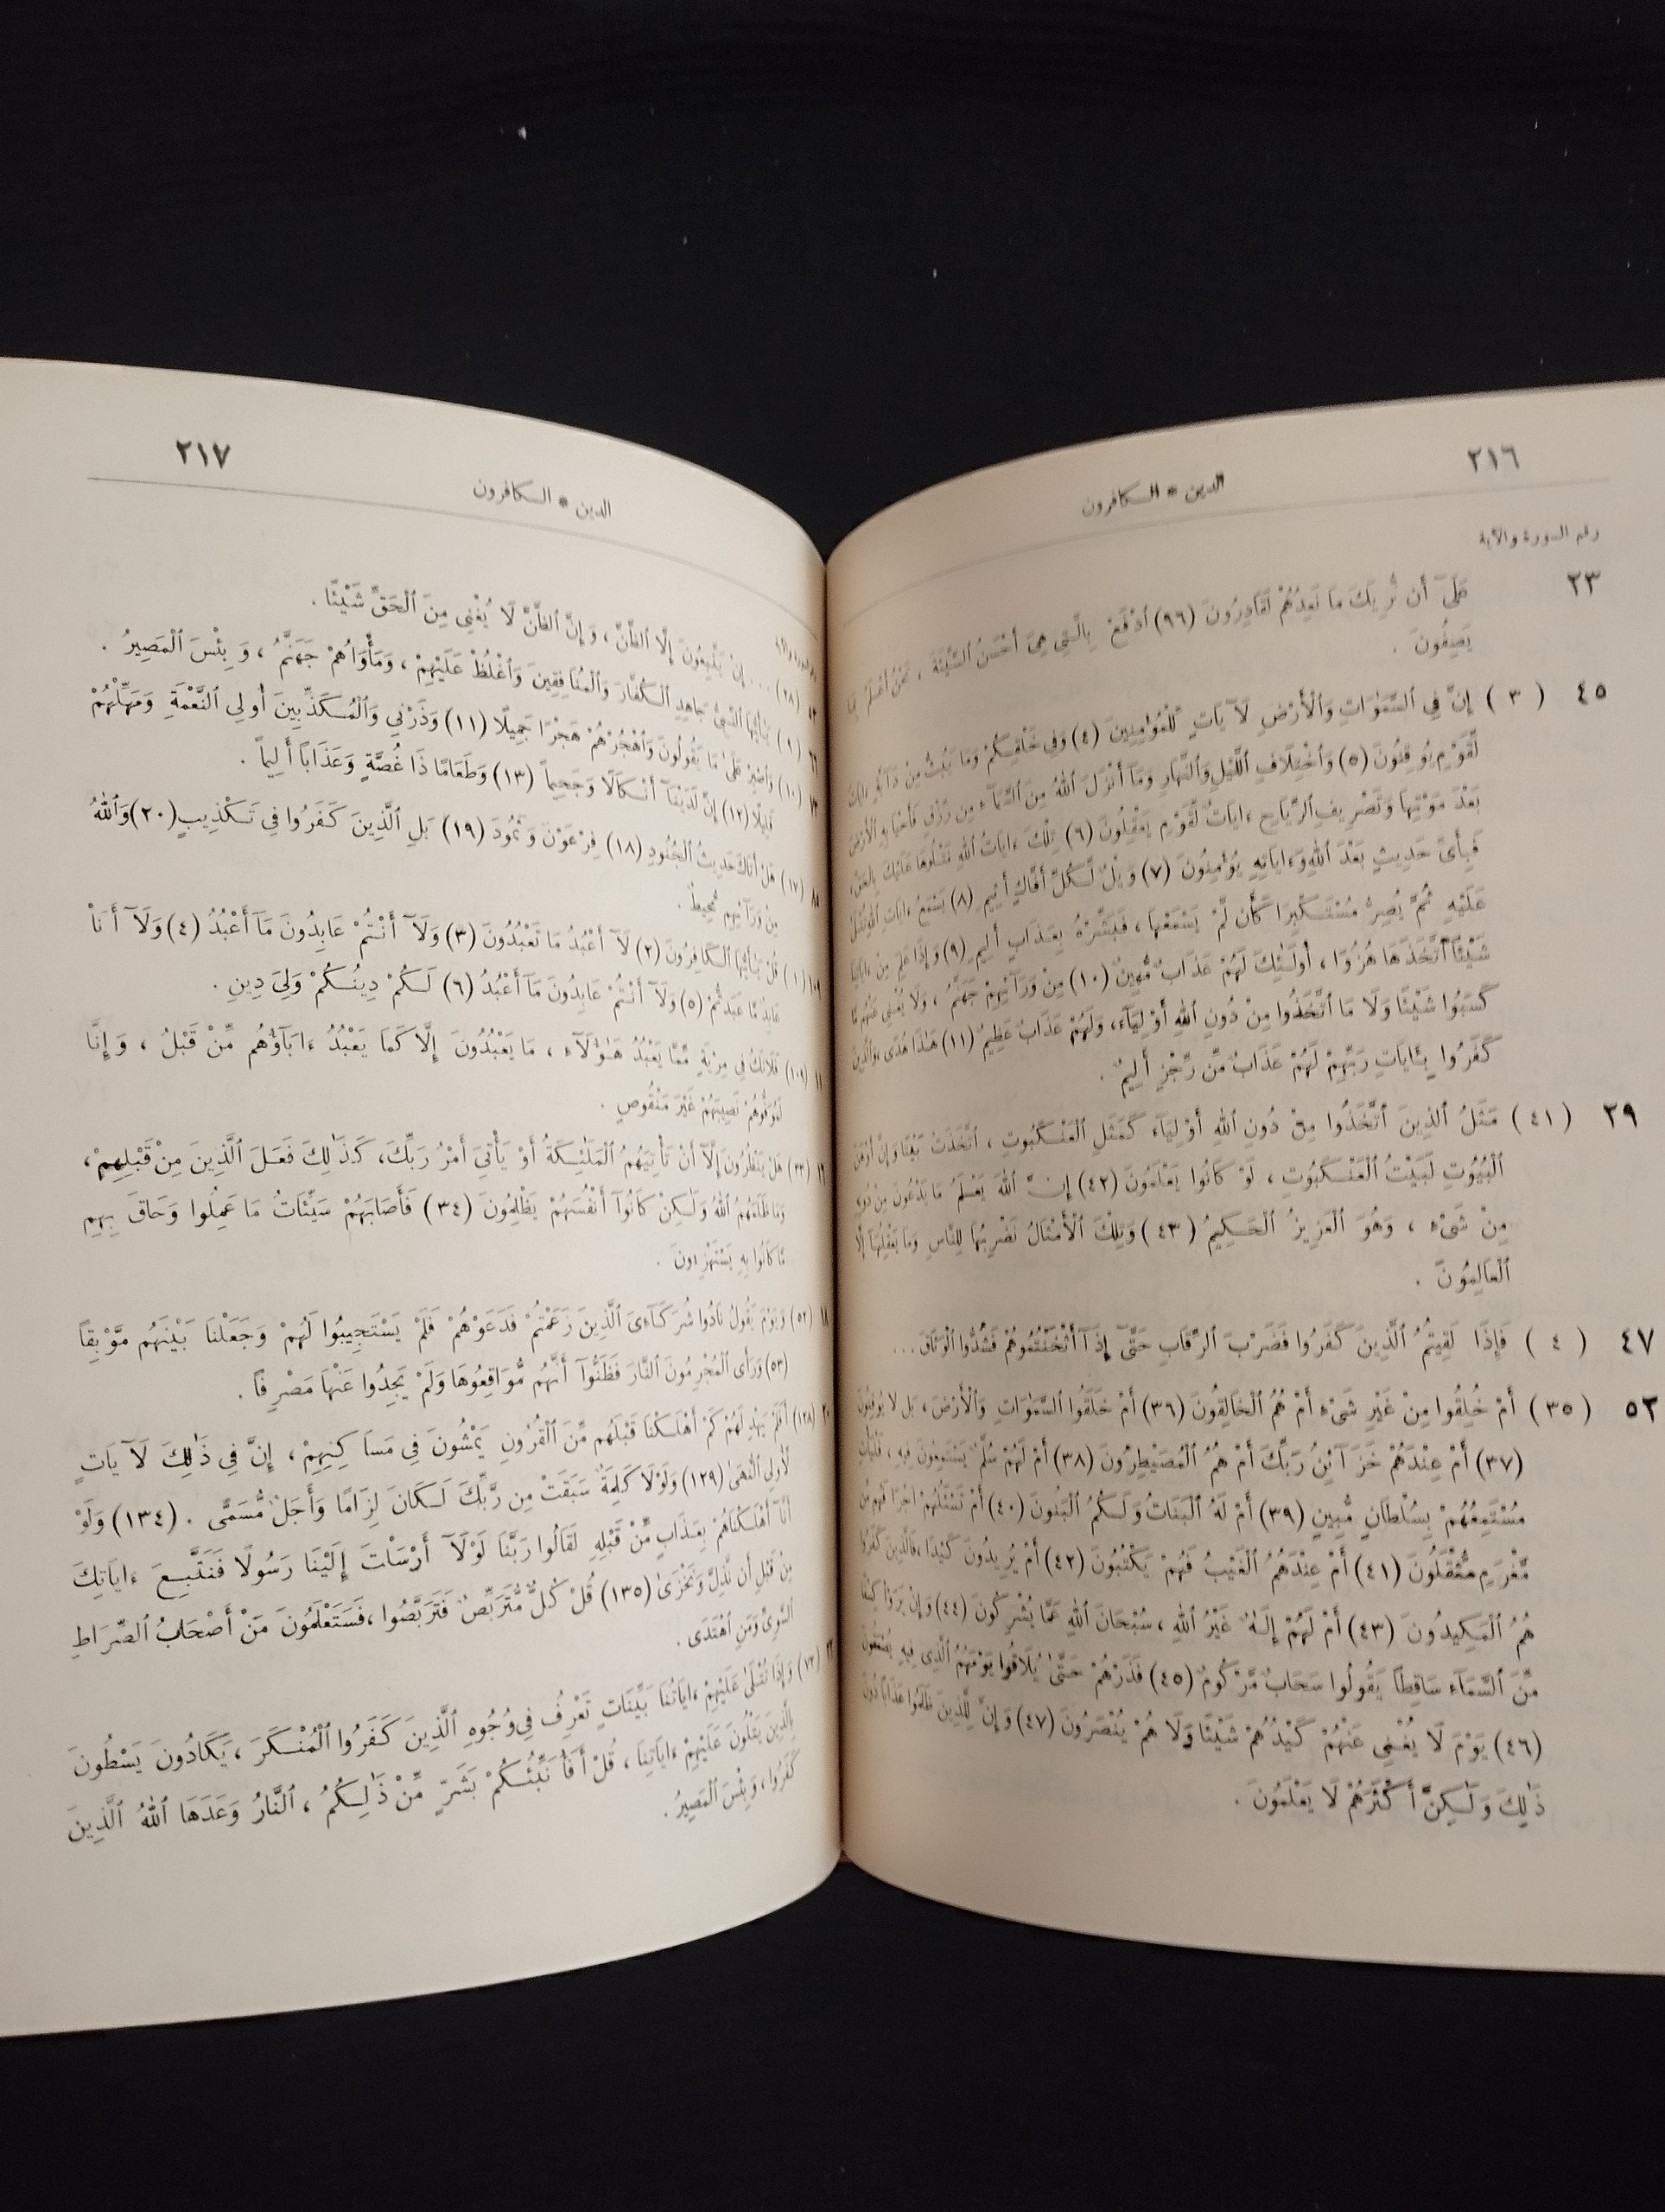 ٢١٦
الدين * الكافرون
رقم السورة والآية
٢٣ عَلَىٰٓ أَن نُّرِيَكَ مَا نَعِدُهُمْ لَقَادِرُونَ (٩٦) ٱدْفَعْ بِٱلَّتِي هِيَ أَحْسَنُ ٱلسَّيِّئَةَ ، نَحْنُ أَعْلَمُ بِمَا
يَصِفُونَ .
٤٥ ( ٣ ) إِنَّ فِي ٱلسَّمَٰوَاتِ وَٱلْأَرْضِ لَآيَاتٍ لِّلْمُؤْمِنِينَ (٤) وَفِي خَلْقِكُمْ وَمَا يَبُثُّ مِن دَآبَّةٍ ءَايَاتٌ
لِّقَوْمٍ يُوقِنُونَ (٥) وَٱخْتِلَافِ ٱللَّيْلِ وَٱلنَّهَارِ وَمَآ أَنْزَلَ ٱللَّهُ مِنَ ٱلسَّمَآءِ مِن رِّزْقٍ فَأَحْيَا بِهِ ٱلْأَرْضَ
بَعْدَ مَوْتِهَا وَتَصْرِيفِ ٱلرِّيَاحِ ءَايَاتٌ لِّقَوْمٍ يَعْقِلُونَ (٦) تِلْكَ ءَايَاتُ ٱللَّهِ نَتْلُوهَا عَلَيْكَ بِٱلْحَقِّ ،
فَبِأَيِّ حَدِيثٍ بَعْدَ ٱللَّهِ وَءَايَاتِهِ يُؤْمِنُونَ (٧) وَيْلٌ لِّكُلِّ أَفَّاكٍ أَثِيمٍ (٨) يَسْمَعُ ءَايَاتِ ٱللَّهِ تُتْلَىٰ
عَلَيْهِ ثُمَّ يُصِرُّ مُسْتَكْبِرًا كَأَن لَّمْ يَسْمَعْهَا ، فَبَشِّرْهُ بِعَذَابٍ أَلِيمٍ (٩) وَإِذَا عَلِمَ مِنْ ءَايَاتِنَا
شَيْئًا ٱتَّخَذَهَا هُزُوًا ، أُولَٰئِكَ لَهُمْ عَذَابٌ مُّهِينٌ (١٠) مِنْ وَرَآئِهِمْ جَهَنَّمُ ، وَلَا يُغْنِي عَنْهُم مَّا
كَسَبُوا شَيْئًا وَلَا مَا ٱتَّخَذُوا مِنْ دُونِ ٱللَّهِ أَوْلِيَآءَ ، وَلَهُمْ عَذَابٌ عَظِيمٌ (١١) هَٰذَا هُدًى وَٱلَّذِينَ
كَفَرُوا بِـَٔايَاتِ رَبِّهِمْ لَهُمْ عَذَابٌ مِّن رِّجْزٍ أَلِيمٌ .
٢٩ (٤١) مَثَلُ ٱلَّذِينَ ٱتَّخَذُوا مِنْ دُونِ ٱللَّهِ أَوْلِيَآءَ كَمَثَلِ ٱلْعَنْكَبُوتِ ، ٱتَّخَذَتْ بَيْتًا وَإِنَّ أَوْهَنَ
ٱلْبُيُوتِ لَبَيْتُ ٱلْعَنْكَبُوتِ ، لَوْ كَانُوا يَعْلَمُونَ (٤٢) إِنَّ ٱللَّهَ يَعْلَمُ مَا يَدْعُونَ مِنْ دُونِهِ
مِنْ شَيْءٍ ، وَهُوَ ٱلْعَزِيزُ ٱلْحَكِيمُ (٤٣) وَتِلْكَ ٱلْأَمْثَالُ نَضْرِبُهَا لِلنَّاسِ وَمَا يَعْقِلُهَا إِلَّا
ٱلْعَالِمُونَ .
٤٧ ( ٤ ) فَإِذَا لَقِيتُمُ ٱلَّذِينَ كَفَرُوا فَضَرْبَ ٱلرِّقَابِ حَتَّىٰٓ إِذَآ أَثْخَنْتُمُوهُمْ فَشُدُّوا ٱلْوَثَاقَ ...
٥٢ (٣٥) أَمْ خُلِقُوا مِنْ غَيْرِ شَيْءٍ أَمْ هُمُ ٱلْخَالِقُونَ (٣٦) أَمْ خَلَقُوا ٱلسَّمَٰوَاتِ وَٱلْأَرْضَ ، بَل لَا يُوقِنُونَ
(٣٧) أَمْ عِنْدَهُمْ خَزَآئِنُ رَبِّكَ أَمْ هُمُ ٱلْمُصَيْطِرُونَ (٣٨) أَمْ لَهُمْ سُلَّمٌ يَسْتَمِعُونَ فِيهِ ، فَلْيَأْتِ
مُسْتَمِعُهُمْ بِسُلْطَانٍ مُّبِينٍ (٣٩) أَمْ لَهُ ٱلْبَنَاتُ وَلَكُمُ ٱلْبَنُونَ (٤٠) أَمْ تَسْـَٔلُهُمْ أَجْرًا فَهُم مِّن
مَّغْرَمٍ مُّثْقَلُونَ (٤١) أَمْ عِنْدَهُمُ ٱلْغَيْبُ فَهُمْ يَكْتُبُونَ (٤٢) أَمْ يُرِيدُونَ كَيْدًا ، فَٱلَّذِينَ كَفَرُوا
هُمُ ٱلْمَكِيدُونَ (٤٣) أَمْ لَهُمْ إِلَٰهٌ غَيْرُ ٱللَّهِ ، سُبْحَانَ ٱللَّهِ عَمَّا يُشْرِكُونَ (٤٤) وَإِنْ يَرَوْا كِسْفًا
مِّنَ ٱلسَّمَآءِ سَاقِطًا يَقُولُوا سَحَابٌ مَّرْكُومٌ (٤٥) فَذَرْهُمْ حَتَّىٰ يُلَاقُوا يَوْمَهُمُ ٱلَّذِي فِيهِ يُصْعَقُونَ
(٤٦) يَوْمَ لَا يُغْنِي عَنْهُمْ كَيْدُهُمْ شَيْئًا وَلَا هُمْ يُنْصَرُونَ (٤٧) وَإِنَّ لِلَّذِينَ ظَلَمُوا عَذَابًا دُونَ
ذَٰلِكَ وَلَٰكِنَّ أَكْثَرَهُمْ لَا يَعْلَمُونَ .
٢١٧
الدين * الكافرون
٥٣ (٢٨) ... إِنْ يَتَّبِعُونَ إِلَّا ٱلظَّنَّ ، وَإِنَّ ٱلظَّنَّ لَا يُغْنِي مِنَ ٱلْحَقِّ شَيْئًا .
٦٦ (٩) يَٰٓأَيُّهَا ٱلنَّبِيُّ جَاهِدِ ٱلْكُفَّارَ وَٱلْمُنَافِقِينَ وَٱغْلُظْ عَلَيْهِمْ ، وَمَأْوَاهُمْ جَهَنَّمُ ، وَبِئْسَ ٱلْمَصِيرُ .
٧٣ (١٠) وَٱصْبِرْ عَلَىٰ مَا يَقُولُونَ وَٱهْجُرْهُمْ هَجْرًا جَمِيلًا (١١) وَذَرْنِي وَٱلْمُكَذِّبِينَ أُولِي ٱلنَّعْمَةِ وَمَهِّلْهُمْ
قَلِيلًا (١٢) إِنَّ لَدَيْنَآ أَنْكَالًا وَجَحِيمًا (١٣) وَطَعَامًا ذَا غُصَّةٍ وَعَذَابًا أَلِيمًا .
٨٥ (١٧) هَلْ أَتَاكَ حَدِيثُ ٱلْجُنُودِ (١٨) فِرْعَوْنَ وَثَمُودَ (١٩) بَلِ ٱلَّذِينَ كَفَرُوا فِي تَكْذِيبٍ (٢٠) وَٱللَّهُ
مِنْ وَرَآئِهِم مُّحِيطٌ .
١٠٩ (١) قُلْ يَٰٓأَيُّهَا ٱلْكَافِرُونَ (٢) لَآ أَعْبُدُ مَا تَعْبُدُونَ (٣) وَلَآ أَنْتُمْ عَابِدُونَ مَآ أَعْبُدُ (٤) وَلَآ أَنَا۠
عَابِدٌ مَّا عَبَدتُّمْ (٥) وَلَآ أَنْتُمْ عَابِدُونَ مَآ أَعْبُدُ (٦) لَكُمْ دِينُكُمْ وَلِيَ دِينِ .
١١ (١٠٩) فَلَا تَكُ فِي مِرْيَةٍ مِّمَّا يَعْبُدُ هَٰٓؤُلَآءِ ، مَا يَعْبُدُونَ إِلَّا كَمَا يَعْبُدُ ءَابَآؤُهُم مِّنْ قَبْلُ ، وَإِنَّا
لَمُوَفُّوهُمْ نَصِيبَهُمْ غَيْرَ مَنْقُوصٍ .
١٦ (٣٣) هَلْ يَنْظُرُونَ إِلَّآ أَنْ تَأْتِيَهُمُ ٱلْمَلَٰئِكَةُ أَوْ يَأْتِيَ أَمْرُ رَبِّكَ ، كَذَٰلِكَ فَعَلَ ٱلَّذِينَ مِنْ قَبْلِهِمْ ،
وَمَا ظَلَمَهُمُ ٱللَّهُ وَلَٰكِنْ كَانُوٓا أَنْفُسَهُمْ يَظْلِمُونَ (٣٤) فَأَصَابَهُمْ سَيِّئَاتُ مَا عَمِلُوا وَحَاقَ بِهِم
مَّا كَانُوا بِهِ يَسْتَهْزِءُونَ .
١٨ (٥٢) وَيَوْمَ يَقُولُ نَادُوا شُرَكَآءِيَ ٱلَّذِينَ زَعَمْتُمْ فَدَعَوْهُمْ فَلَمْ يَسْتَجِيبُوا لَهُمْ وَجَعَلْنَا بَيْنَهُم مَّوْبِقًا
(٥٣) وَرَأَى ٱلْمُجْرِمُونَ ٱلنَّارَ فَظَنُّوٓا أَنَّهُم مُّوَاقِعُوهَا وَلَمْ يَجِدُوا عَنْهَا مَصْرِفًا .
٢٠ (١٢٨) أَفَلَمْ يَهْدِ لَهُمْ كَمْ أَهْلَكْنَا قَبْلَهُم مِّنَ ٱلْقُرُونِ يَمْشُونَ فِي مَسَاكِنِهِمْ ، إِنَّ فِي ذَٰلِكَ لَآيَاتٍ
لِّأُولِي ٱلنُّهَىٰ (١٢٩) وَلَوْلَا كَلِمَةٌ سَبَقَتْ مِن رَّبِّكَ لَكَانَ لِزَامًا وَأَجَلٌ مُّسَمًّى . (١٣٤) وَلَوْ
أَنَّآ أَهْلَكْنَاهُمْ بِعَذَابٍ مِّنْ قَبْلِهِ لَقَالُوا رَبَّنَا لَوْلَآ أَرْسَلْتَ إِلَيْنَا رَسُولًا فَنَتَّبِعَ ءَايَاتِكَ
مِنْ قَبْلِ أَن نَّذِلَّ وَنَخْزَىٰ (١٣٥) قُلْ كُلٌّ مُّتَرَبِّصٌ فَتَرَبَّصُوا ، فَسَتَعْلَمُونَ مَنْ أَصْحَابُ ٱلصِّرَاطِ
ٱلسَّوِيِّ وَمَنِ ٱهْتَدَى .
٢٢ (٧٢) وَإِذَا تُتْلَىٰ عَلَيْهِمْ ءَايَاتُنَا بَيِّنَاتٍ تَعْرِفُ فِي وُجُوهِ ٱلَّذِينَ كَفَرُوا ٱلْمُنْكَرَ ، يَكَادُونَ يَسْطُونَ
بِٱلَّذِينَ يَتْلُونَ عَلَيْهِمْ ءَايَاتِنَا ، قُلْ أَفَأُنَبِّئُكُمْ بِشَرٍّ مِّنْ ذَٰلِكُمُ ، ٱلنَّارُ وَعَدَهَا ٱللَّهُ ٱلَّذِينَ
كَفَرُوا ، وَبِئْسَ ٱلْمَصِيرُ .